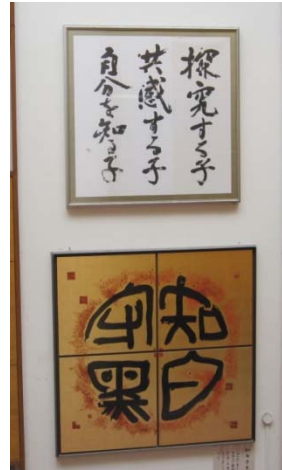 探究する子
共感する子
自分を知る子
知白
守黑